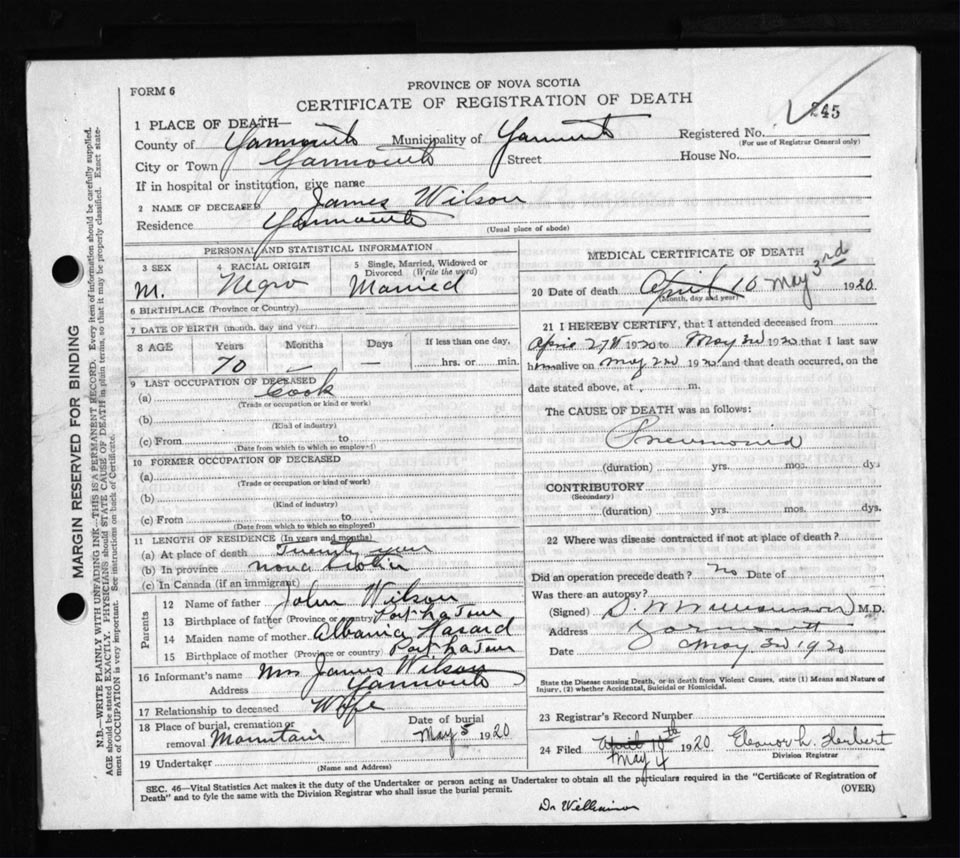 PROVINCE OF NOVA SCOTIA
FORM 6
CERTIFICATE OF REGISTRATION OF DEATH
245
1 PLACE OF DEATH—
County of Yarmouth Municipality of Yarmouth Registered No.
(For use of Registrar General only)
City or Town Yarmouth Street House No.
If in hospital or institution, give name
2 NAME OF DECEASED James Wilson
Residence Yarmouth
(Usual place of abode)
PERSONAL AND STATISTICAL INFORMATION
3 SEX 4 RACIAL ORIGIN 5 Single, Married, Widowed or Divorced (Write the word)
M. Negro Married
6 BIRTHPLACE (Province or Country)
7 DATE OF BIRTH (month, day and year)
8 AGE Years Months Days If less than one day,
70 — — hrs. or min.
9 LAST OCCUPATION OF DECEASED
(a) Cook
(Trade or occupation or kind or work)
(b)
(Kind of industry)
(c) From to
(Date from which to which so employed)
10 FORMER OCCUPATION OF DECEASED
(a)
(Trade or occupation or kind of work)
(b)
(Kind of industry)
(c) From to
(Date from which to which so employed)
11 LENGTH OF RESIDENCE (In years and months)
(a) At place of death Twenty year
(b) In province Nova Scotia
(c) In Canada (if an immigrant)
Parents
12 Name of father John Wilson
13 Birthplace of father (Province or country) Port La Tour
14 Maiden name of mother Albania Hasard
15 Birthplace of mother (Province or country) Port La Tour
16 Informant's name Mrs James Wilson
Address Yarmouth
17 Relationship to deceased Wife
18 Place of burial, cremation or removal Mountain
Date of burial May 5 1920
19 Undertaker
(Name and Address)
MEDICAL CERTIFICATE OF DEATH
20 Date of death April 10 May 3rd 1920.
(Month, day and year)
21 I HEREBY CERTIFY, that I attended deceased from
April 27th 1920 to May 3rd 1920 that I last saw
him alive on May 2nd 1920 and that death occurred, on the
date stated above, at m.
The CAUSE OF DEATH was as follows:
Pneumonia
(duration) yrs. mos. dys
CONTRIBUTORY
(Secondary)
(duration) yrs. mos. dys.
22 Where was disease contracted if not at place of death?
Did an operation precede death? no Date of
Was there an autopsy?
(Signed) D. W Williamson M.D.
Address Yarmouth
Date May 3rd 1920
State the Disease Causing Death, or in death from Violent Causes, state (1) Means and Nature of Injury, (2) whether Accidental, Suicidal or Homicidal.
23 Registrar's Record Number
24 Filed April 10th 1920 Eleanor L. Herbert
May 4
Division Registrar
SEC. 46—Vital Statistics Act makes it the duty of the Undertaker or person acting as Undertaker to obtain all the particulars required in the "Certificate of Registration of
Death" and to fyle the same with the Division Registrar who shall issue the burial permit. (OVER)
Dr Williamson
MARGIN RESERVED FOR BINDING
N.B.—WRITE PLAINLY WITH UNFADING INK—THIS IS A PERMANENT RECORD. Every item of information should be carefully supplied.
AGE should be stated EXACTLY. PHYSICIANS should STATE CAUSE OF DEATH in plain terms, so that it may be properly classified. Exact state-
ment of OCCUPATION is very important. See instructions on back of Certificate.